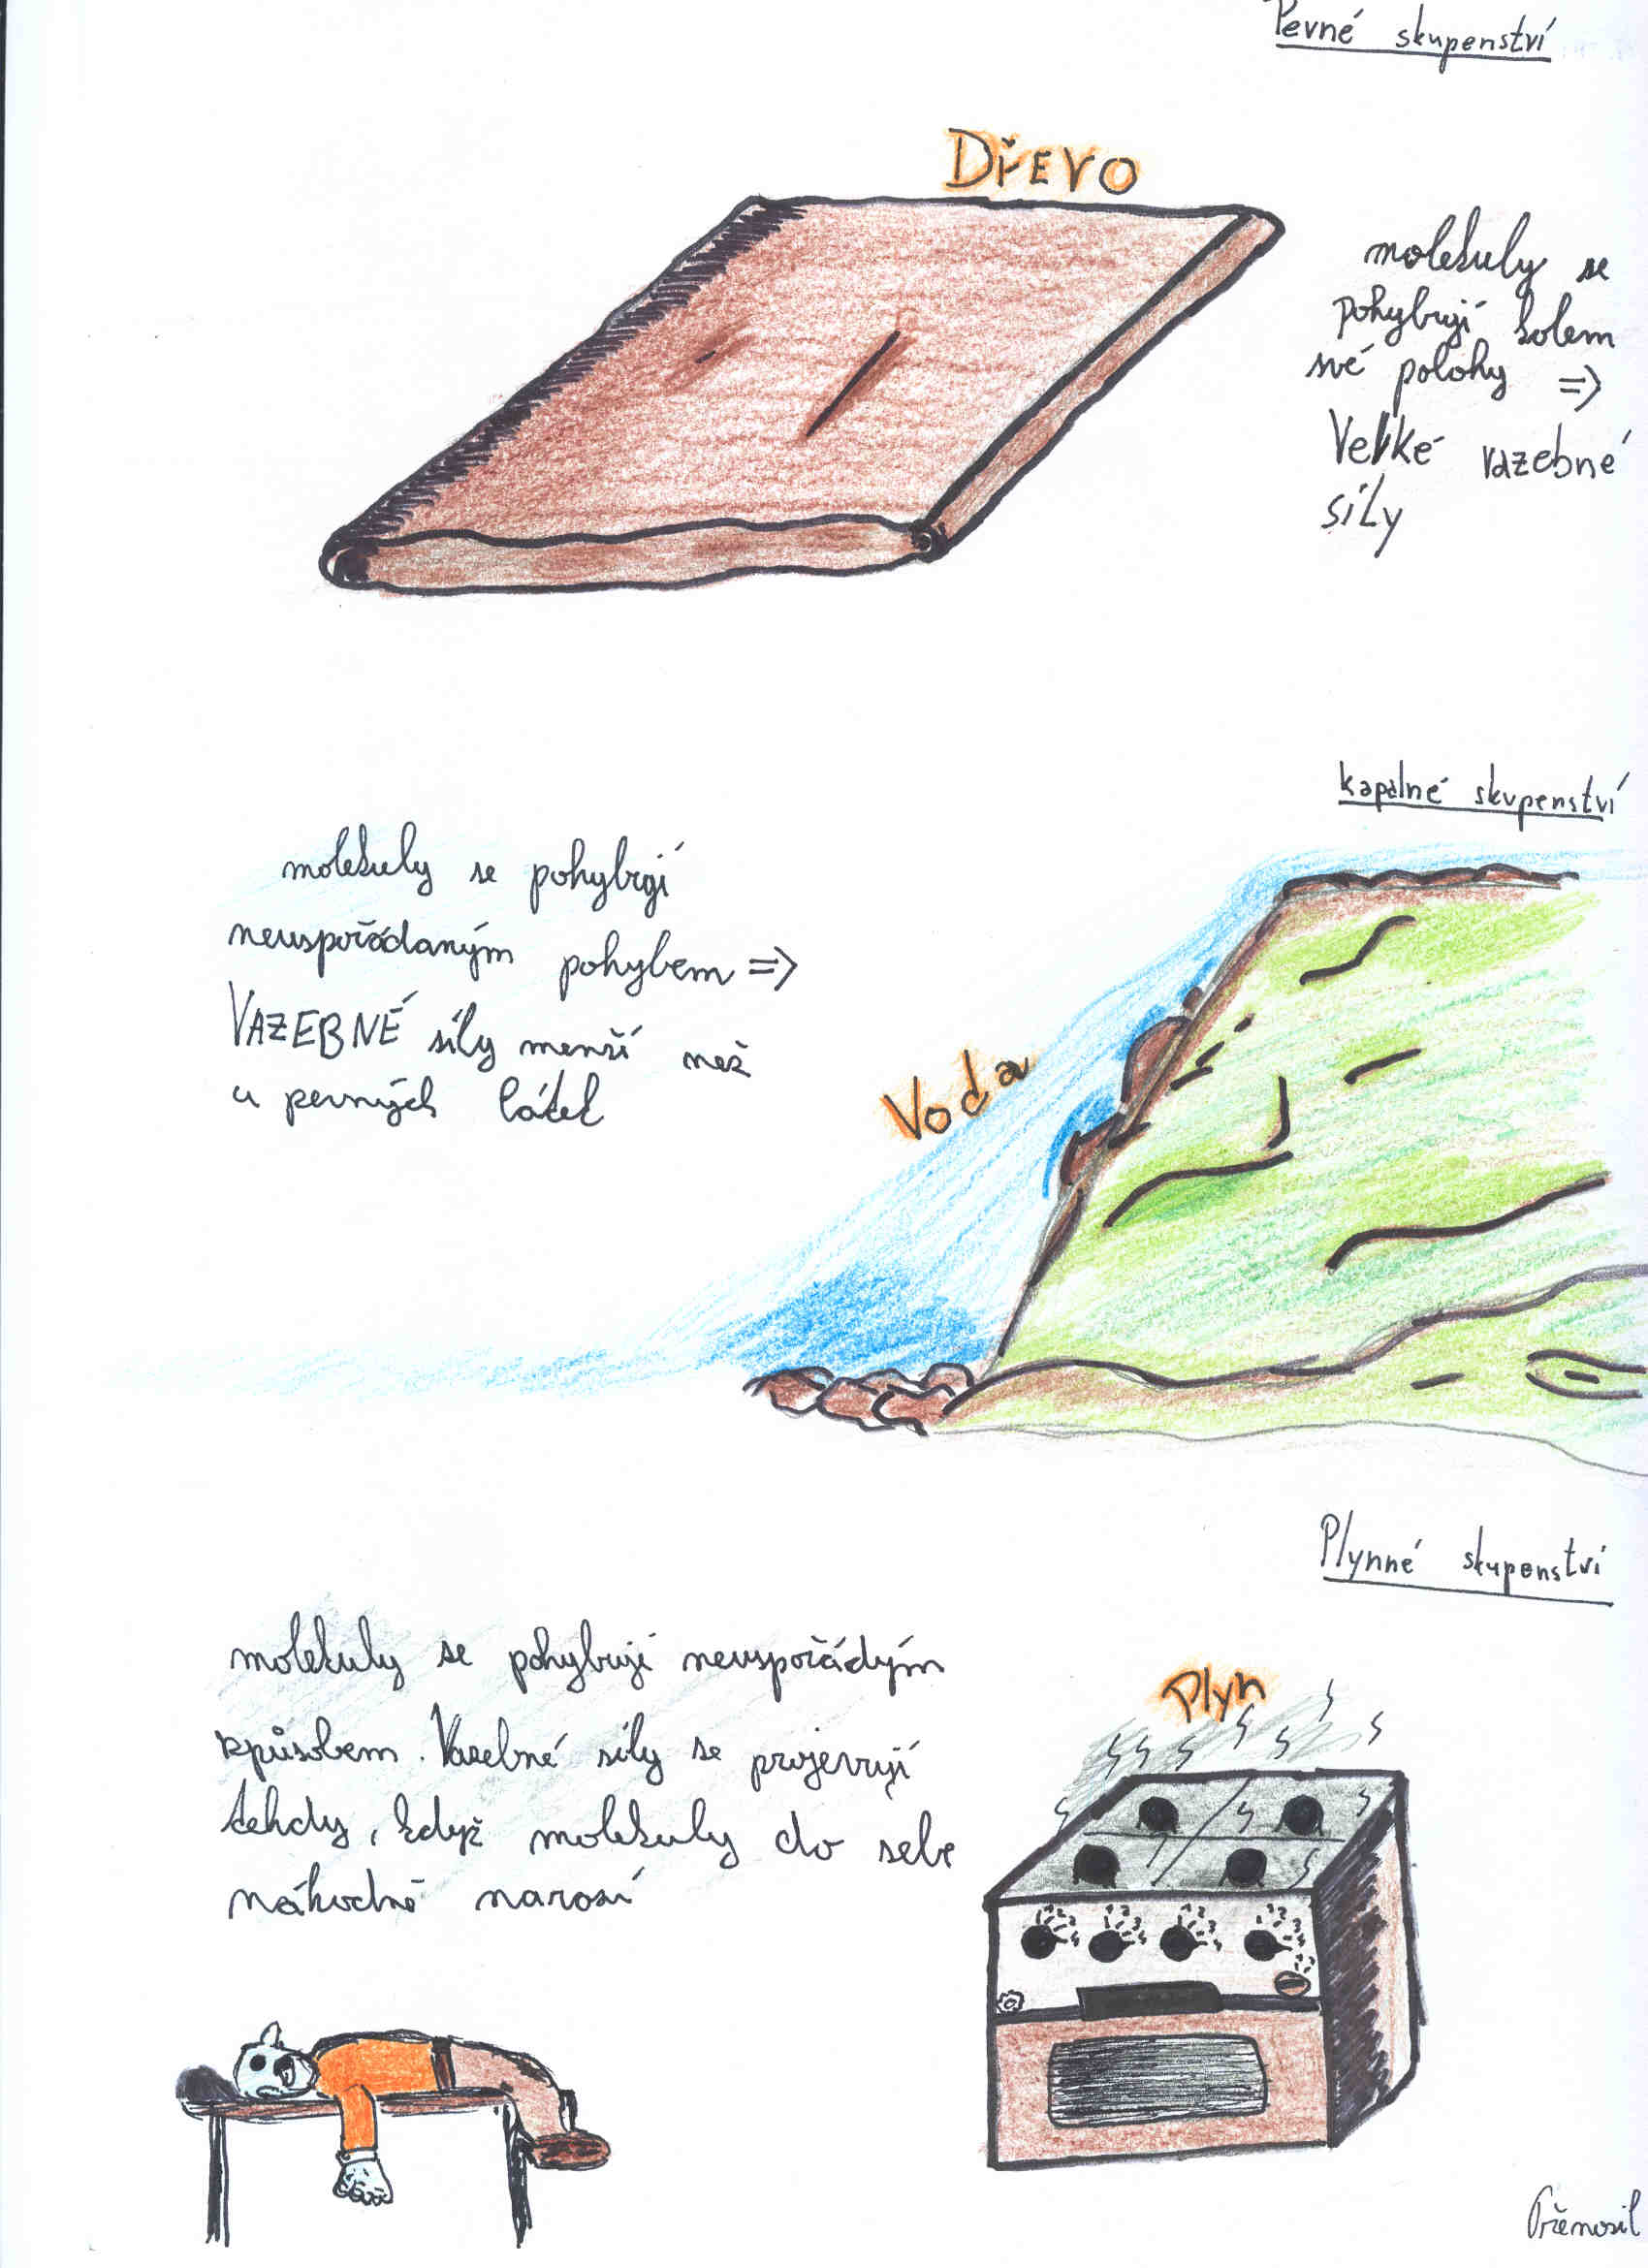 Pevné skupenství
DŘEVO
molekuly se
pohybují kolem
své polohy =>
Velké vazebné
síly
kapalné skupenství
molekuly se pohybují
neuspořádaným pohybem =>
VAZEBNÉ síly menší než
u pevných látek
Voda
Plynné skupenství
molekuly se pohybují neuspořádým
způsobem. Vazebné síly se projevují
tehdy, když molekuly do sebe
náhodně narosí
Plyn
1 2 3 4
1 2 3 4
1 2 3 4
1 2 3 4
Přenosil